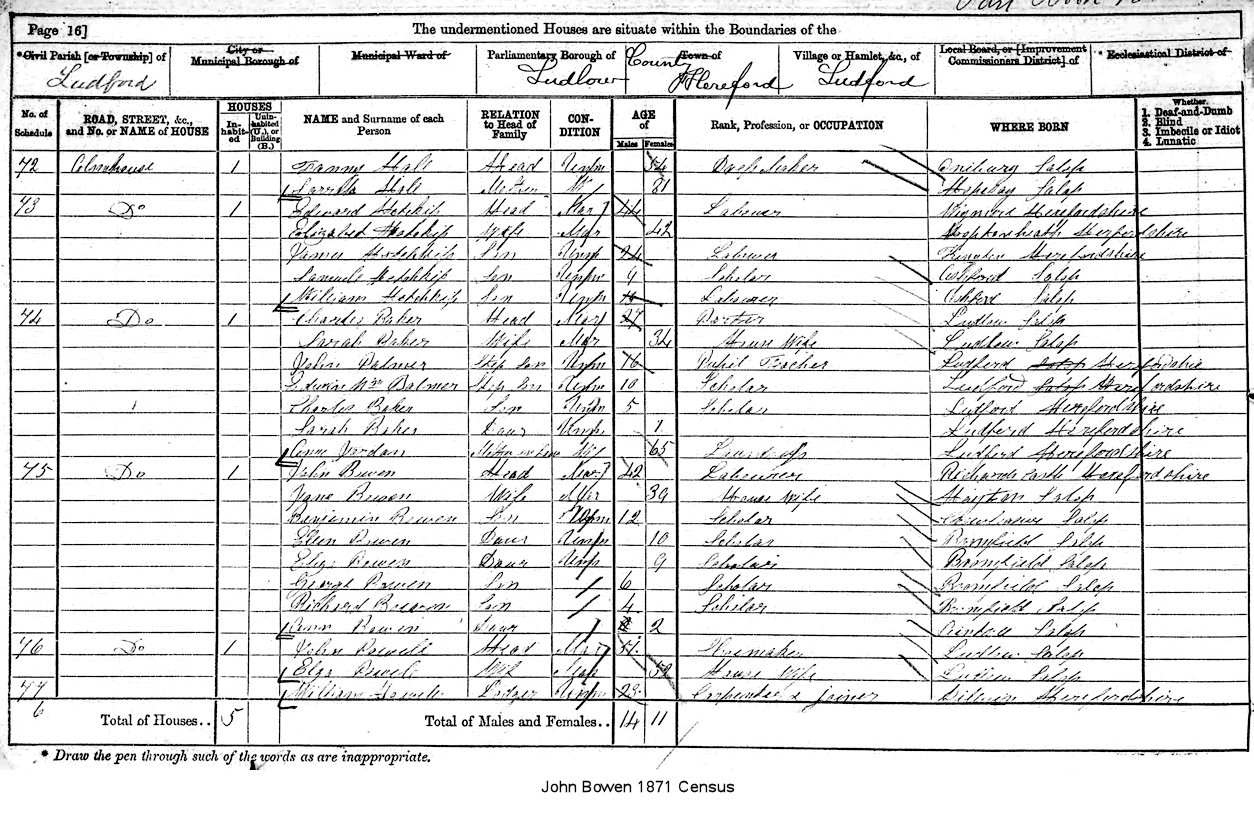 Page 16]
The undermentioned Houses are situate within the Boundaries of the
*Civil Parish [or Township] of City or Municipal Borough of Municipal Ward of Parliamentary Borough of Town of Village or Hamlet, &c., of Local Board, or [Improvement Commissioners District] of * Ecclesiastical District of
Ludford Ludlow County Hereford Ludford
No. of Schedule ROAD, STREET, &c., and No. or NAME of HOUSE HOUSES Inhabited Uninhabited (U.), or Building (B.) NAME and Surname of each Person RELATION to Head of Family CONDITION AGE of Males Females Rank, Profession, or OCCUPATION WHERE BORN Whether 1. Deaf-and-Dumb 2. Blind 3. Imbecile or Idiot 4. Lunatic
72 Almshouse 1 Fanny Hall Head Unm 54 Onibury Salop
Hall Mother W 81 Salop
73 Do 1 Edward Hotchkiss Head Mar 44 Labourer Wigmore Herefordshire
Elizabeth Hotchkiss Wife Mar 42 Herefordshire
James Hotchkiss Son Unm 24 Labourer Herefordshire
Samuel Hotchkiss Son Unm 9 Scholar Ashford Salop
William Hotchkiss Son Unm Labourer Ashford Salop
74 Do 1 Charles Baker Head Mar 27 Porter Ludlow Salop
Sarah Baker Wife Mar 34 House Wife Ludlow Salop
John Palmer Step Son Unm 16 Pupil Teacher Ludford Salop Herefordshire
Edwin Wm Palmer Step Son Unm 10 Scholar Ludford Salop Herefordshire
Charles Baker Son Unm 5 Scholar Ludford Herefordshire
Sarah Baker Daur Unm 1 Ludford Herefordshire
Anne Jordan Mother in law Wid 65 Ludford Herefordshire
75 Do 1 John Bowen Head Mar 42 Labourer Richards Castle Herefordshire
Jane Bowen Wife Mar 39 House Wife Hayton Salop
Benjamin Bowen Son Unm 12 Scholar Salop
Ellen Bowen Daur Unm 10 Scholar Bromfield Salop
Eliza Bowen Daur Unm 9 Scholar Bromfield Salop
George Bowen Son / 6 Scholar Bromfield Salop
Richard Bowen Son / 4 Scholar Bromfield Salop
Ann Bowen Daur / 2 Salop
76 Do 1 John Powell Head Mar 51 Ludlow Salop
Eliza Powell Wife Mar House Wife Ludlow Salop
77 William Lodger Unm 23 Carpenter & Joiner Dilwyn Herefordshire
6 Total of Houses.. 5 Total of Males and Females.. 14 11
* Draw the pen through such of the words as are inappropriate.
John Bowen 1871 Census